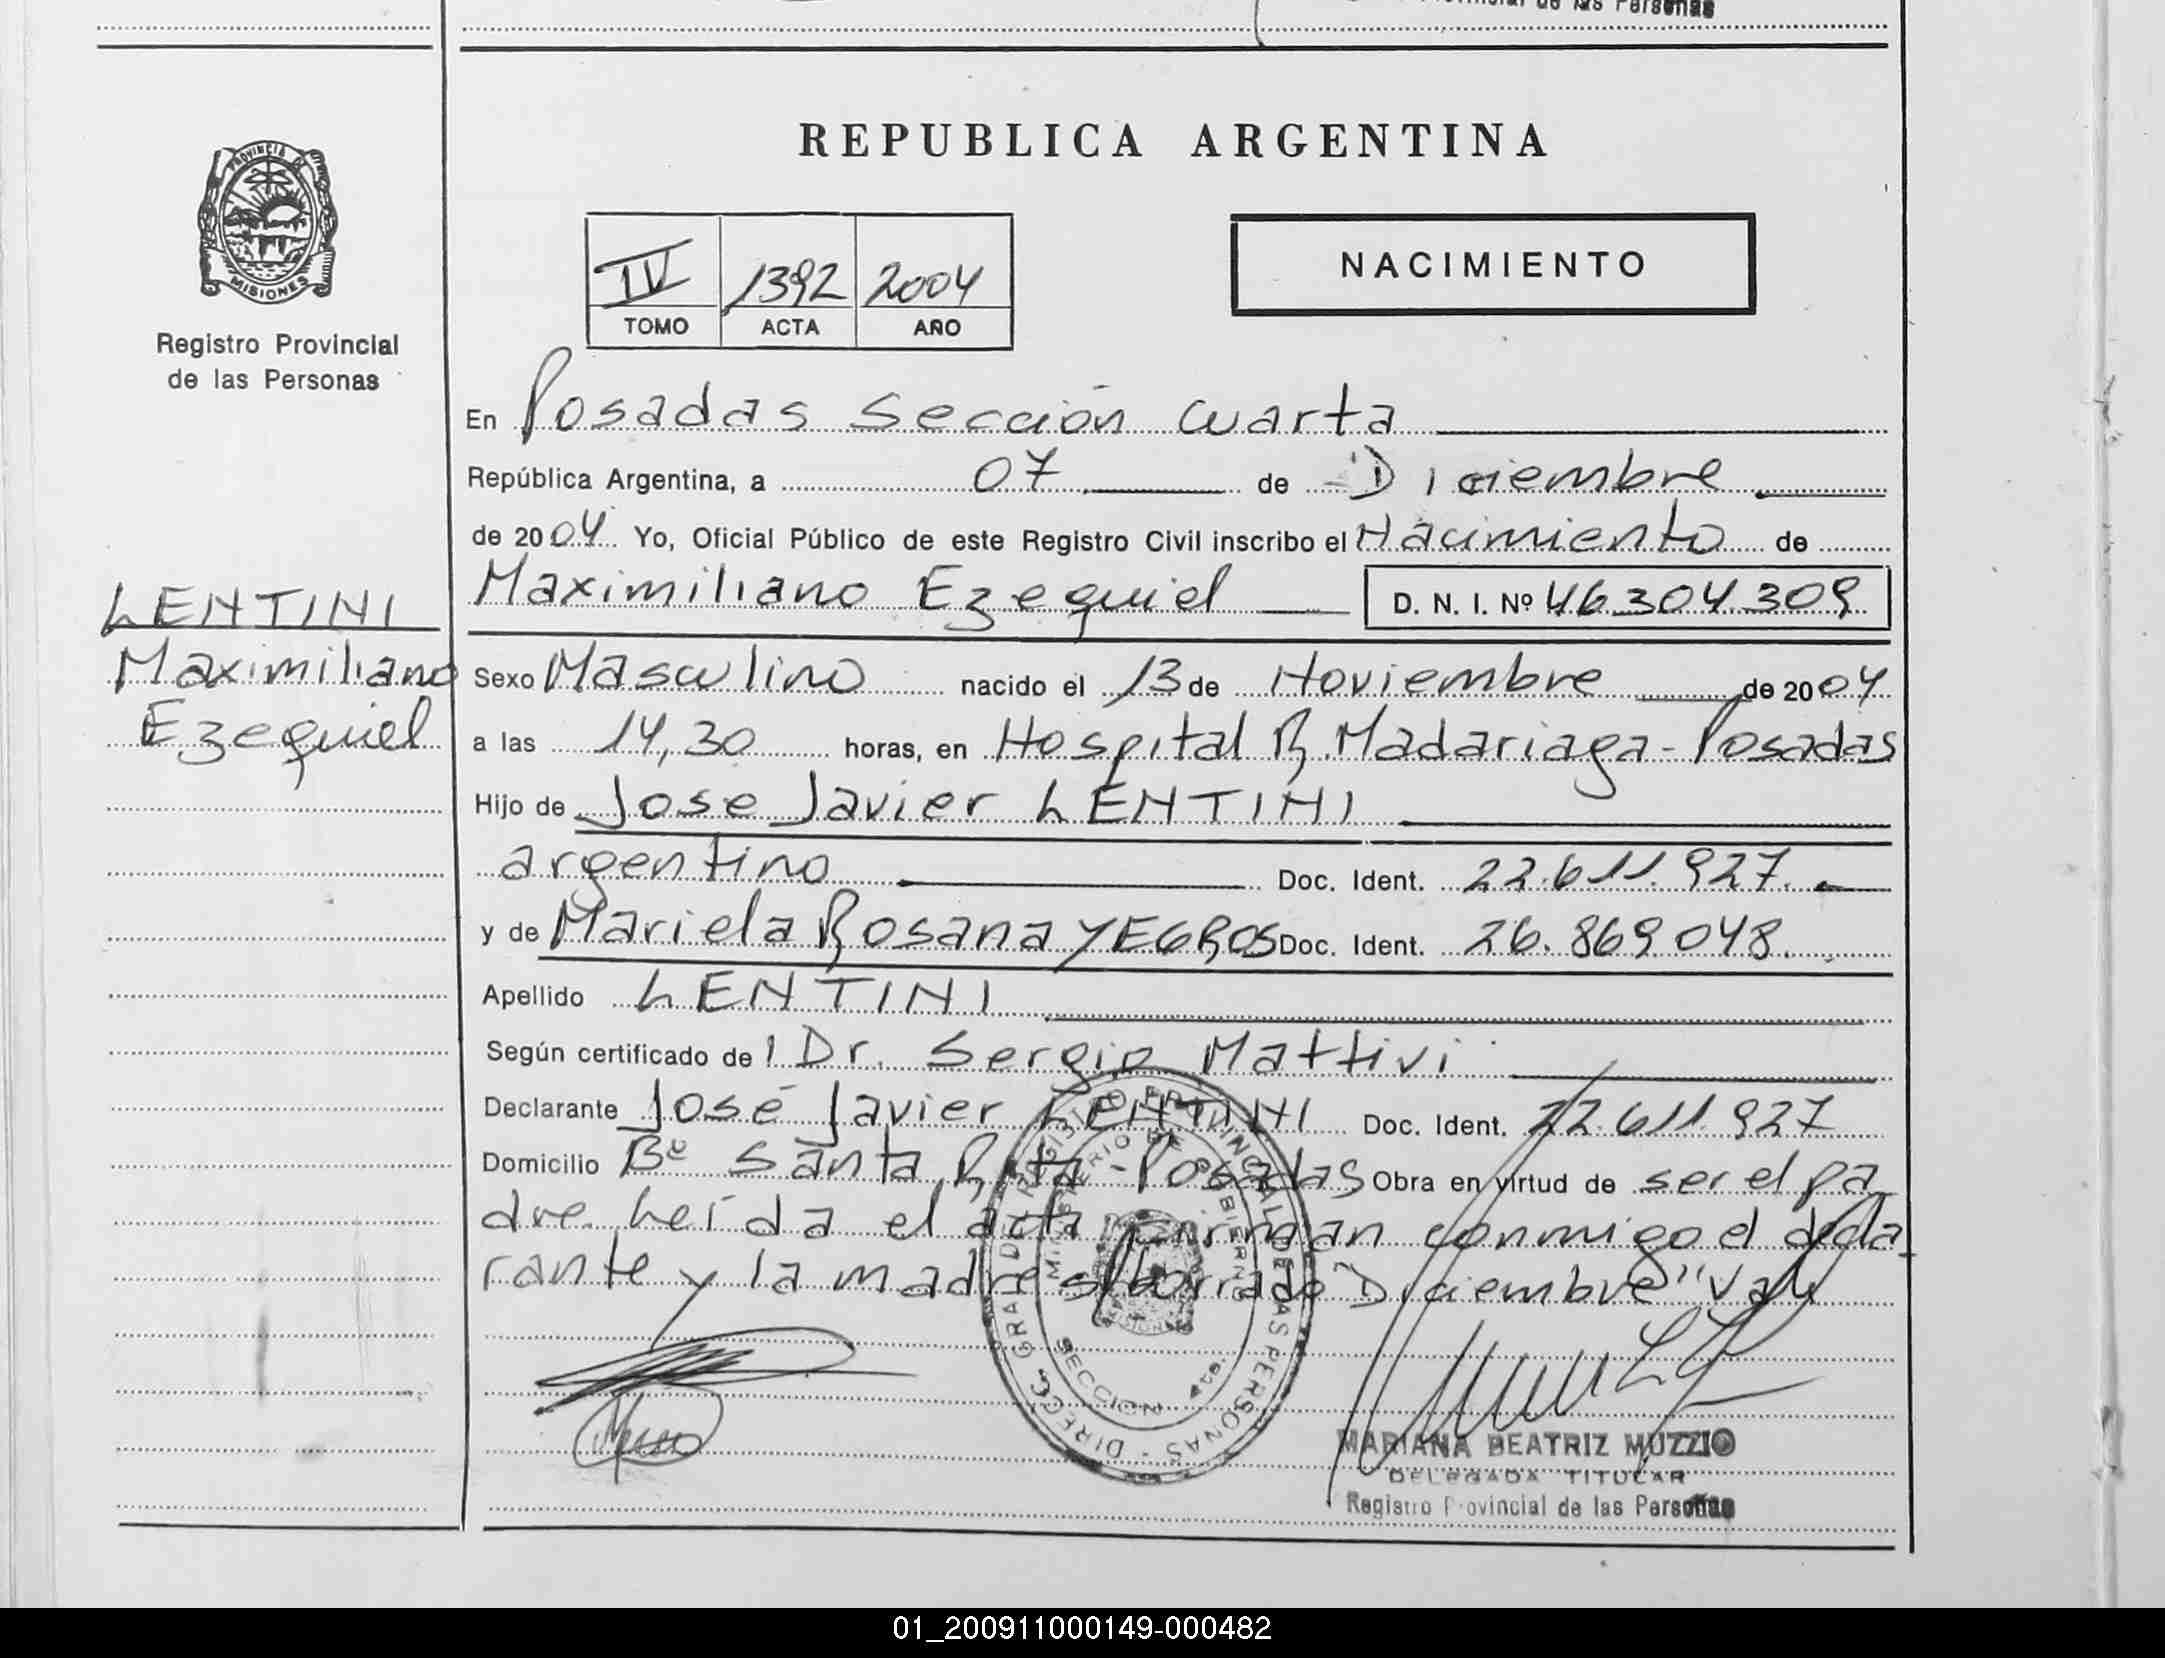 de las Personas
REPUBLICA ARGENTINA
PROVINCIA DE
MISIONES
Registro Provincial
de las Personas
IV 1392 2004
TOMO ACTA AÑO
NACIMIENTO
En Posadas Sección Cuarta
República Argentina, a 07 de Diciembre
de 2004 Yo, Oficial Público de este Registro Civil inscribo el Nacimiento de
LENTINI
Maximiliano
Ezequiel
Maximiliano Ezequiel D. N. I. Nº 46304309
Sexo Masculino nacido el 13 de Noviembre de 2004
a las 14,30 horas, en Hospital R. Madariaga - Posadas
Hijo de Jose Javier LENTINI
argentino Doc. Ident. 22.611.927.
y de Mariela Rosana YEGROS Doc. Ident. 26.869.048.
Apellido LENTINI
Según certificado del Dr. Sergio Mattivi
Declarante José Javier LENTINI Doc. Ident. 22.611.927
Domicilio Bº Santa Rita - Posadas Obra en virtud de ser el pa
dre. Leída el acta firman conmigo el decla
rante y la madre s/borrado "Diciembre" Vale
DIRECC. GRAL. DEL REGISTRO PROVINCIAL DE LAS PERSONAS
MINISTERIO DE GOBIERNO
SECCION 4ta.
MARIANA BEATRIZ MUZZIO
DELEGADA TITULAR
Registro Provincial de las Personas
01_200911000149-000482